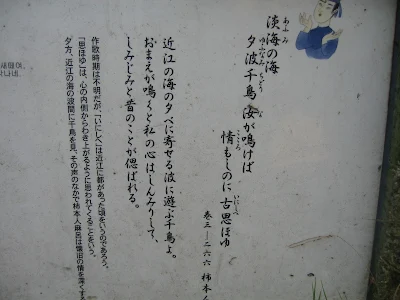 淡海の海
あふみ
夕波千鳥 汝が鳴けば
ゆふなみ ちどり な
情もしのに 古思ほゆ
こころ いにしへ
巻三―二六六 柿本
近江の海の夕べに寄せる波に遊ぶ千鳥よ。
おまえが鳴くと私の心はしんみりして、
しみじみと昔のことが偲ばれる。
作歌時期は不明だが、「いにしへ」は近江に都があった頃をいうのであろう。
「思ほゆ」は、心の内側からわき上がるように思われてくることをいう。
夕方、近江の海の波間に千鳥を見、その声のなかで柿本人麻呂は懐旧の情を深くする